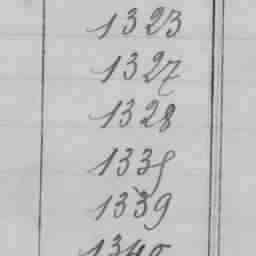 1323
1327
1328
1335
1339
1340